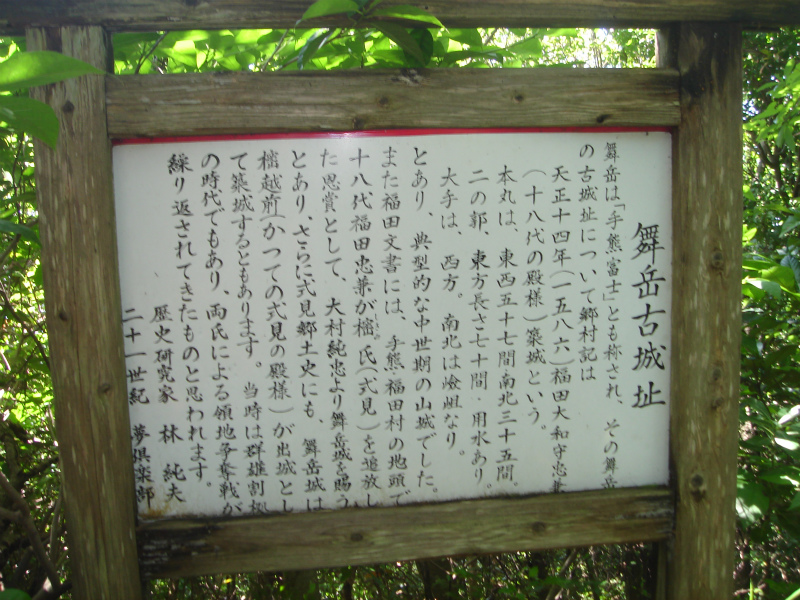 舞岳古城址
舞岳は「手熊富士」とも称され、その舞岳
の古城址について郷村記は
天正十四年(一五八六)福田大和守忠兼
(十八代の殿様)築城という。
本丸は、東西五十七間南北三十五間。
二の郭、東方長さ七十間・用水あり。
大手は、西方。南北は嶮岨なり。
とあり、典型的な中世期の山城でした。
また福田文書には、手熊・福田村の地頭で
十八代福田忠兼が樒氏(式見)を追放し
た恩賞として、大村純忠より舞岳城を賜う
とあり、さらに式見郷土史にも、舞岳城は
樒越前(かつての式見の殿様)が出城とし
て築城するともあります。当時は群雄割拠
の時代でもあり、両氏による領地争奪戦が
繰り返されてきたものと思われます。
歴史研究家 林 純夫
二十一世紀 夢倶楽部